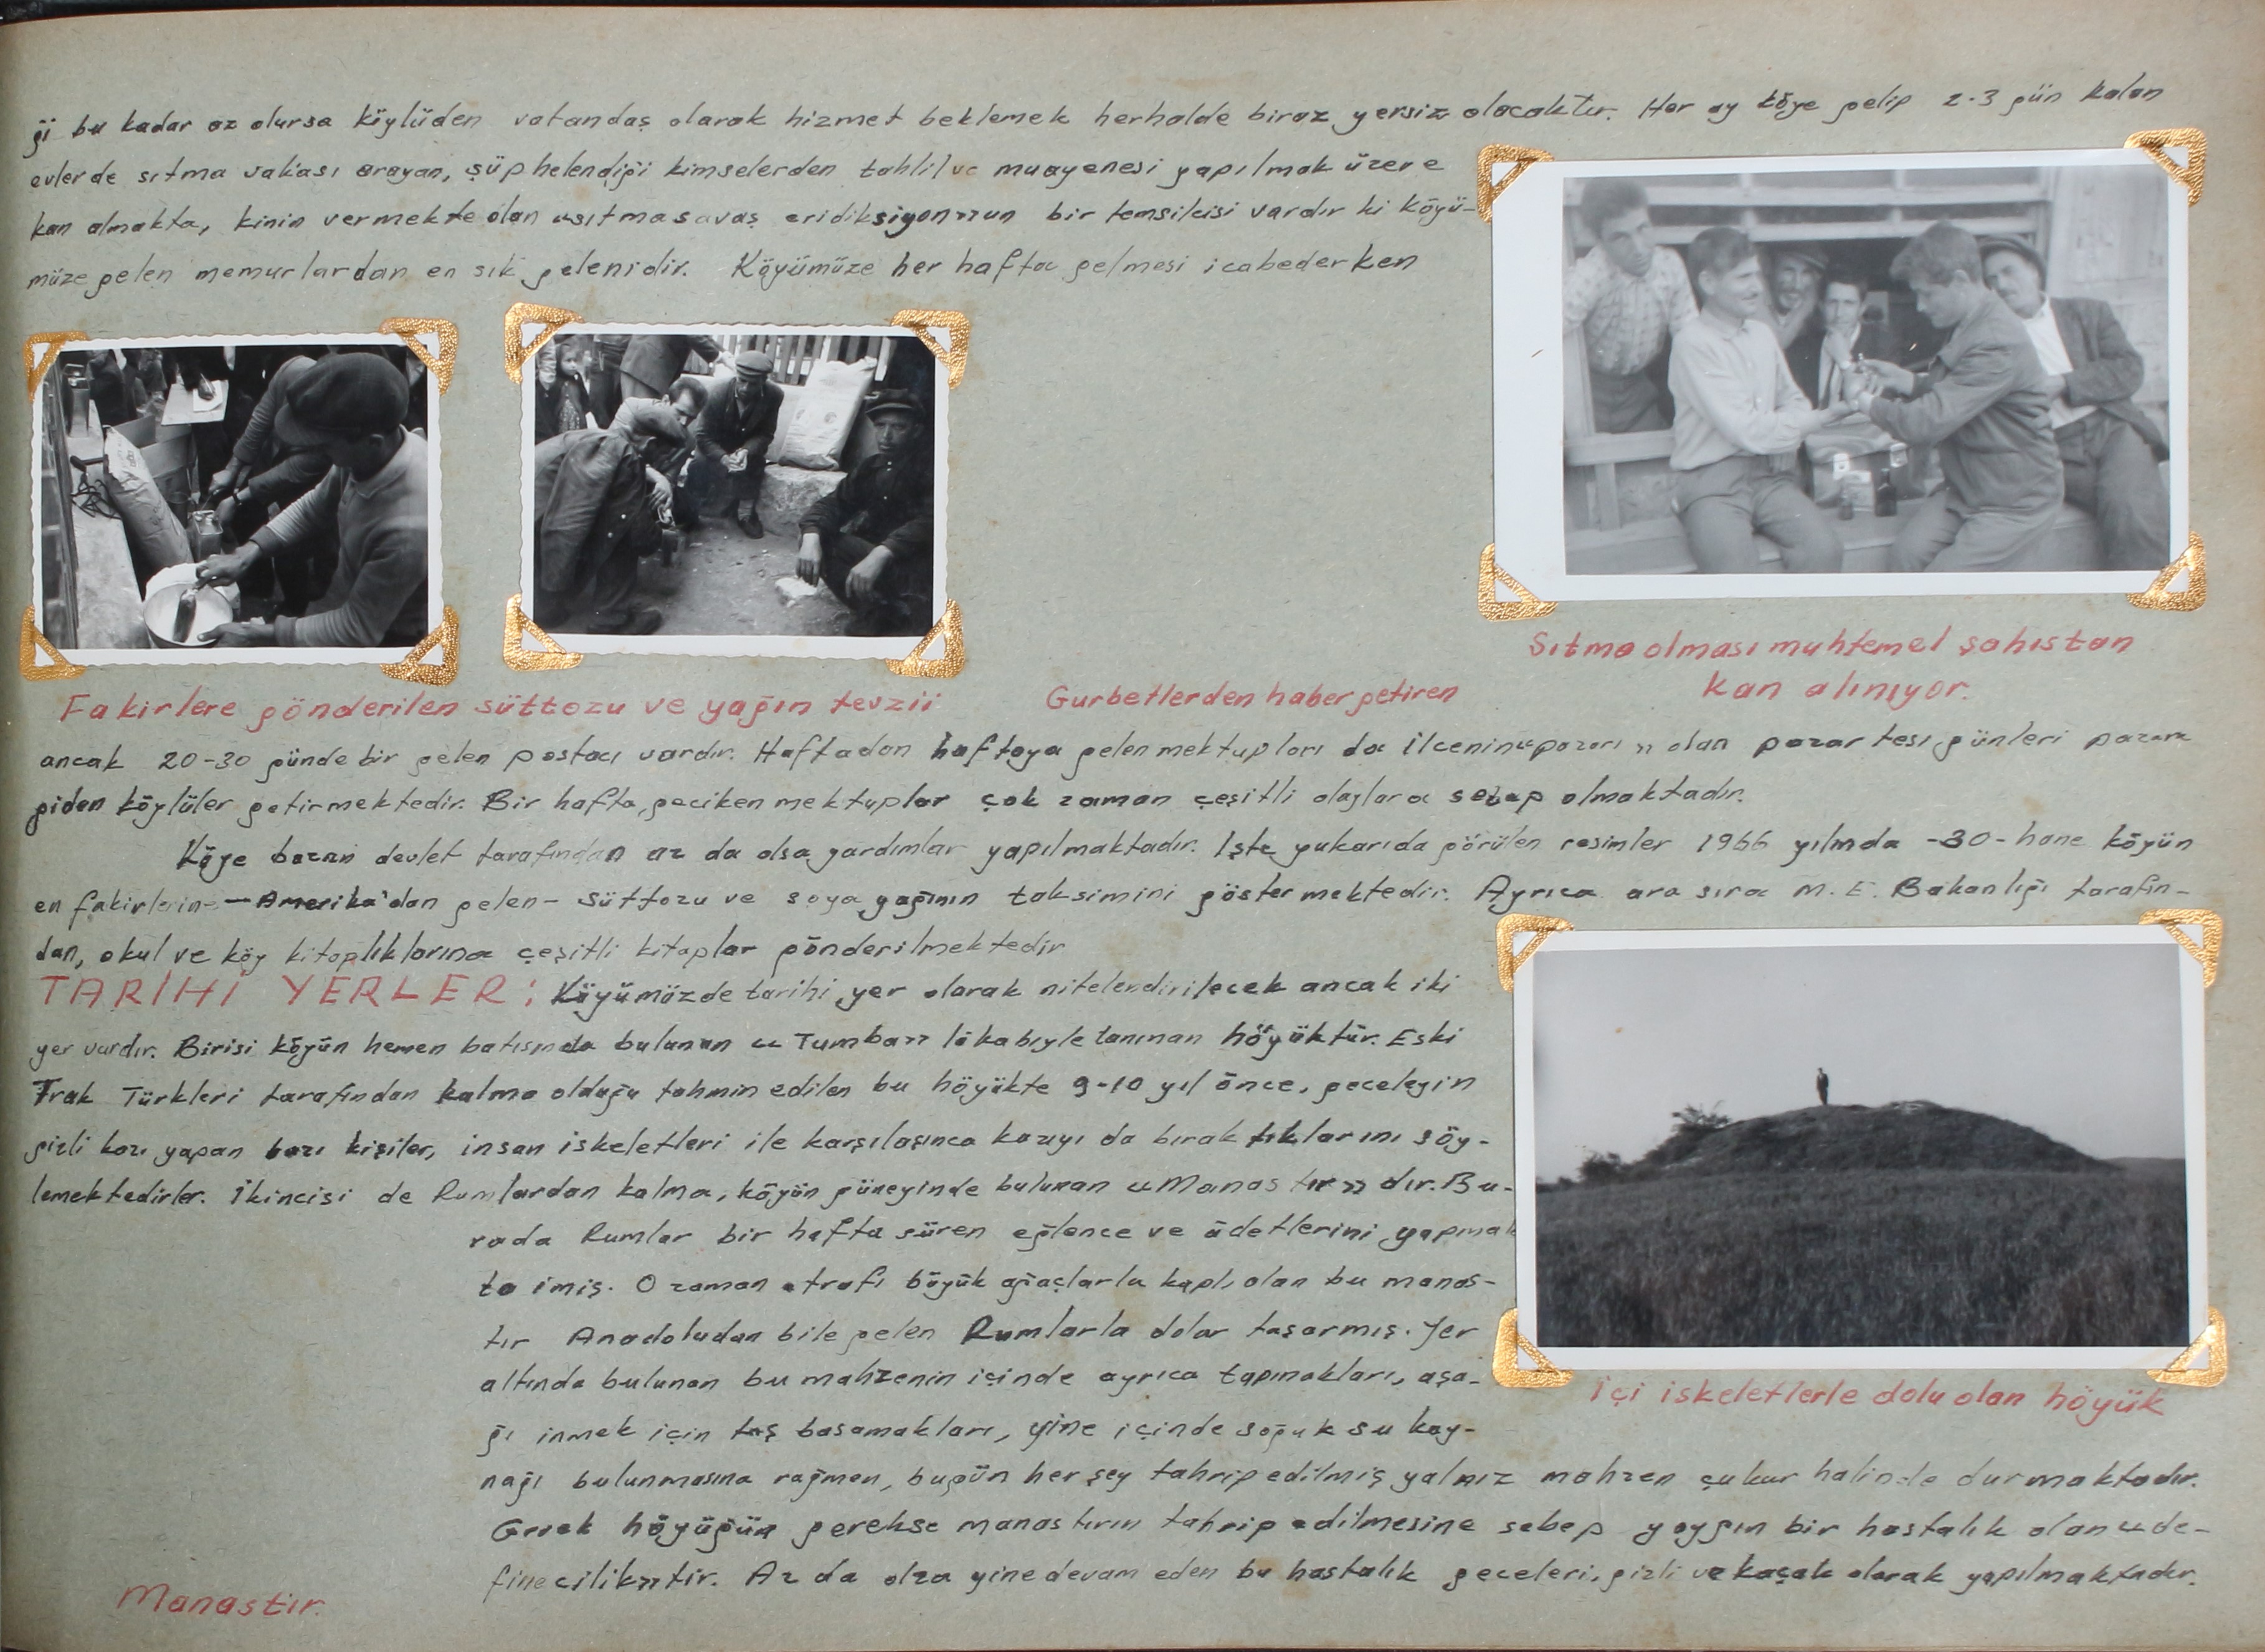 ği bu kadar az olursa köylüden vatandaş olarak hizmet beklemek herhalde biraz yersiz olacaktır. Her ay köye gelip 2-3 gün kalan
evlerde sıtma vakası arayan, şüphelendiği kimselerden tahlil ve muayenesi yapılmak üzere
kan almakta, kinin vermekte olan «sıtma savaş eridiksiyon»un bir temsilcisi vardır ki köyü-
müze gelen memurlardan en sık gelenidir. Köyümüze her hafta gelmesi icabederken
Sıtma olması muhtemel şahıstan
kan alınıyor.
Fakirlere gönderilen süttozu ve yağın tevzii
Gurbetlerden haber getiren
ancak 20-30 günde bir gelen postacı vardır. Haftadan haftaya gelen mektupları da ilcenin «pazarı» olan pazartesi günleri pazara
giden köylüler getirmektedir. Bir hafta geciken mektuplar çok zaman çeşitli olaylara sebep olmaktadır.
Köye bazan devlet tarafından az da olsa yardımlar yapılmaktadır. İşte yukarıda görülen resimler 1966 yılında -30- hane köyün
en fakirlerin- - Amerika'dan gelen - süttozu ve soya yağının taksimini göstermektedir. Ayrıca ara sıra M. E. Bakanlığı tarafın-
dan, okul ve köy kitaplıklarına çeşitli kitaplar gönderilmektedir
TARİHİ YERLER: Köyümüzde tarihi yer olarak nitelendirilecek ancak iki
yer vardır. Birisi köyün hemen batısında bulunan «Tumba» lâkabıyle tanınan höyüktür. Eski
Trak Türkleri tarafından kalma olduğu tahmin edilen bu höyükte 9-10 yıl önce, geceleyin
gizli kazı yapan bazı kişiler, insan iskeletleri ile karşılaşınca kazıyı da bıraktıklarını söy-
lemektedirler. İkincisi de Rumlardan kalma, köyün güneyinde bulunan «Manastır» dır. Bu-
rada Rumlar bir hafta süren eğlence ve âdetlerini yapmak
ta imiş. O zaman etrafı böyük ağaçlarla kaplı olan bu manas-
tır Anadoludan bile gelen Rumlarla dolar taşarmış. Yer
altında bulunan bu mahzenin içinde ayrıca tapınakları, aşa-
ğı inmek için taş basamakları, yine içinde soğuk su kay-
nağı bulunmasına rağmen, bugün her şey tahrip edilmiş yalnız mahzen çukur halinde durmaktadır.
Gerek höyüğün gerekse manastırın tahrip edilmesine sebep yaygın bir hastalık olan «de-
finecilik»tir. Az da olsa yine devam eden bu hastalık geceleri, gizli ve kaçak olarak yapılmaktadır.
İçi iskeletlerle dolu olan höyük
Manastır.